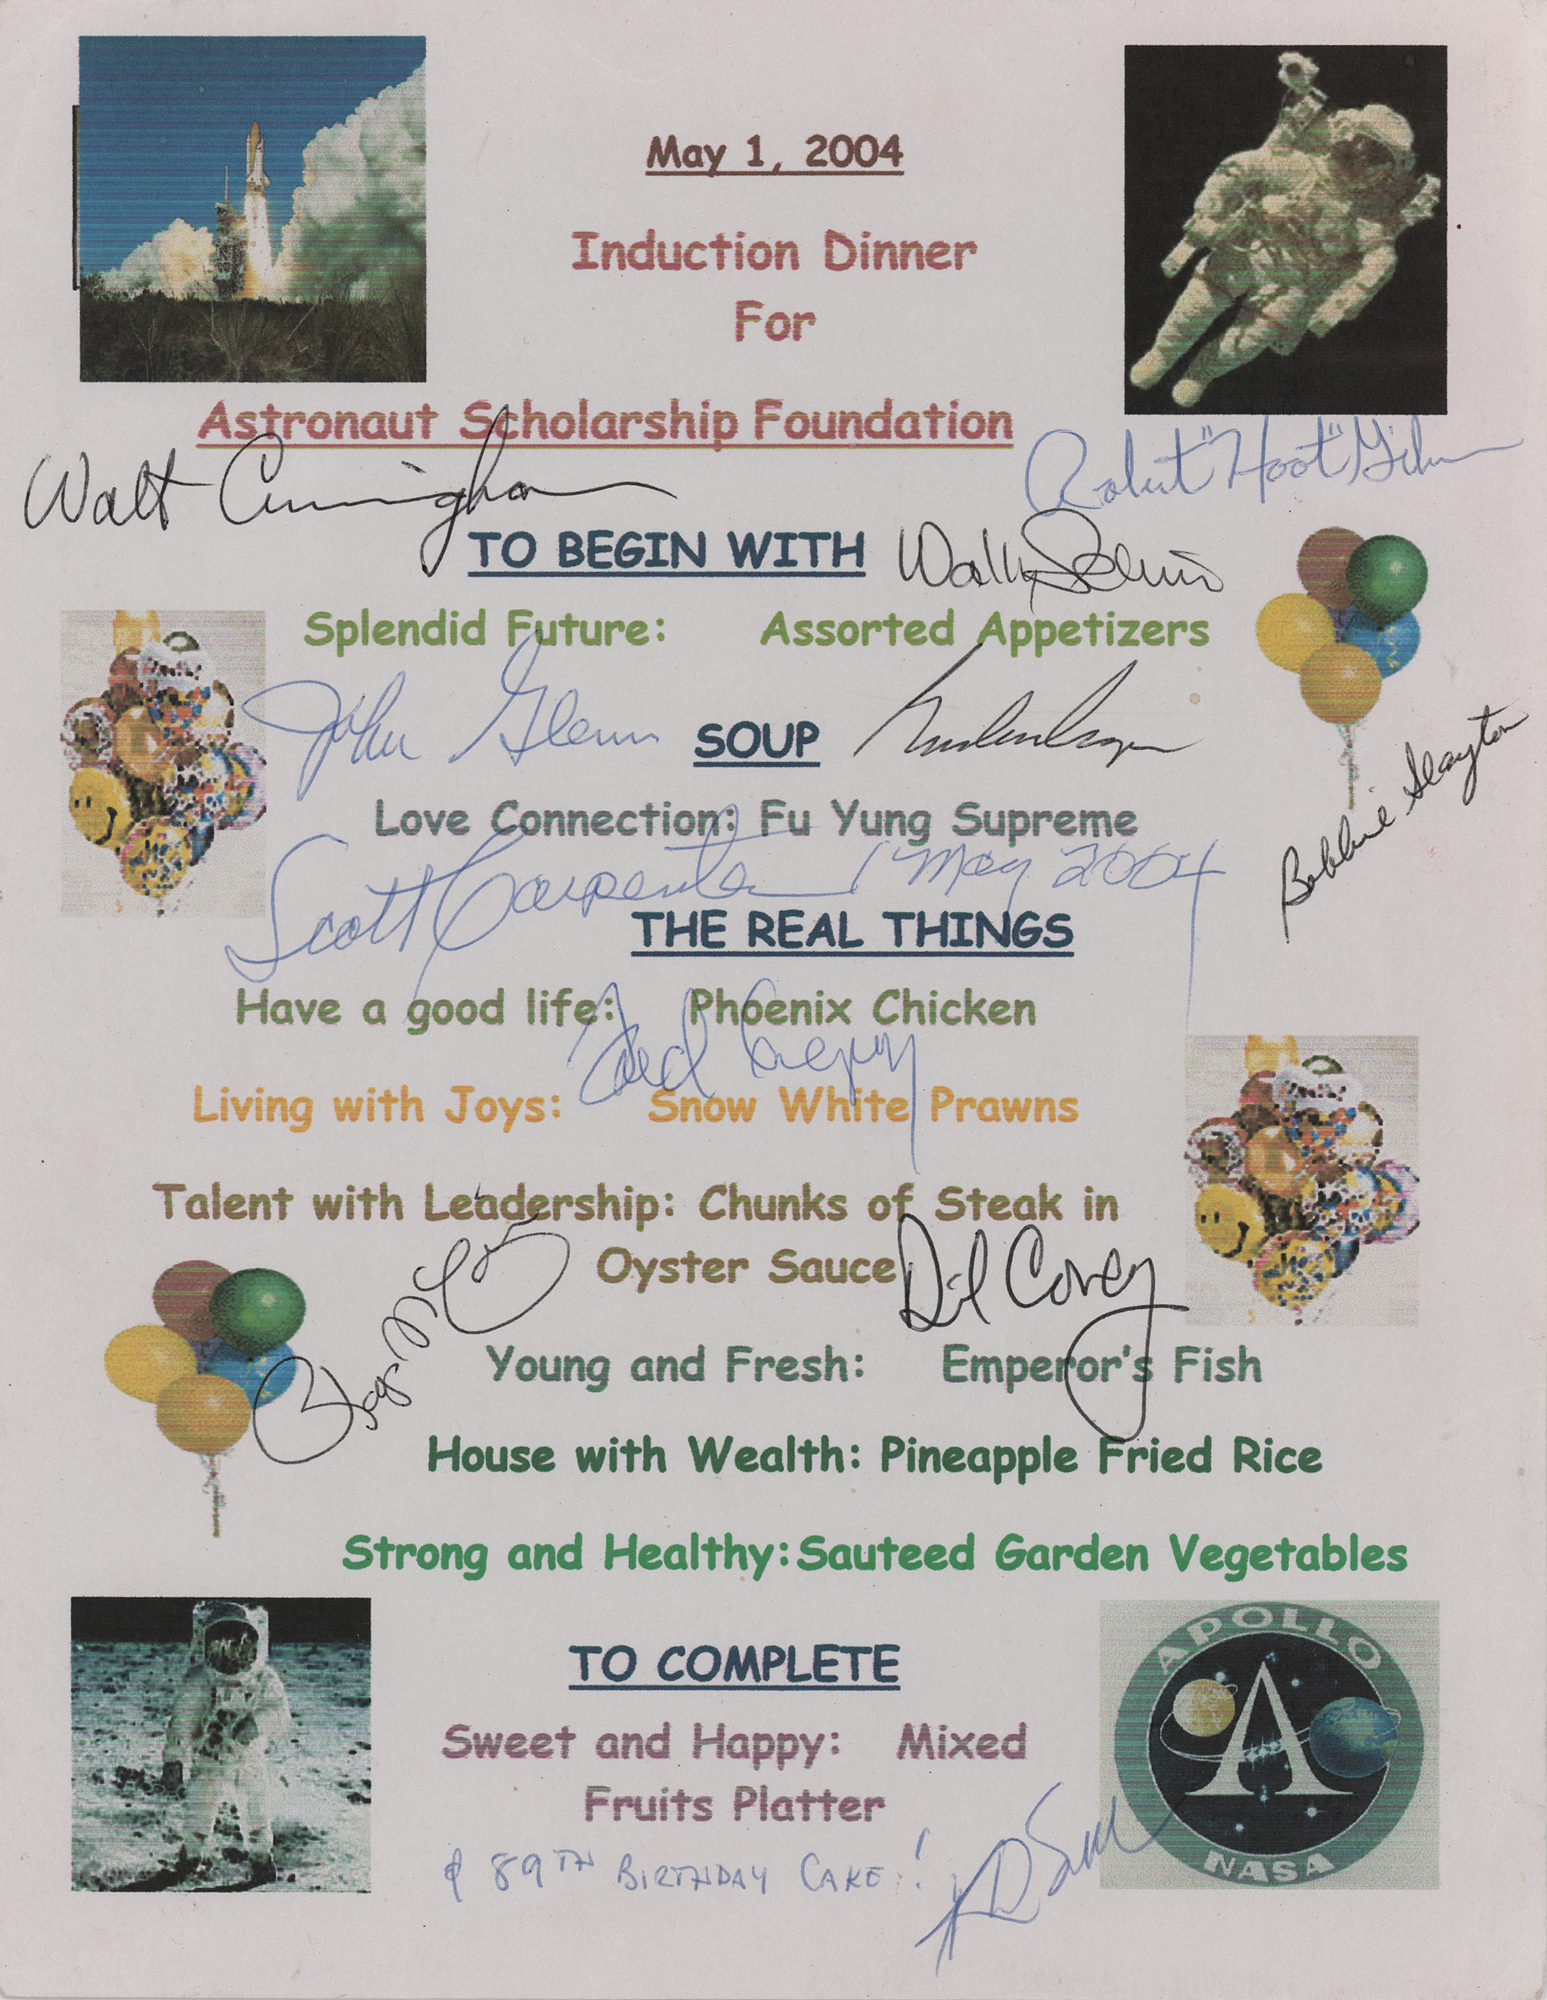 May 1, 2004
Induction Dinner
For
Astronaut Scholarship Foundation
Walt Cunningham
Robert "Hoot" Gibson
TO BEGIN WITH
Wally Schirra
Splendid Future: Assorted Appetizers
John Glenn
SOUP
Bobbie Slayton
Love Connection: Fu Yung Supreme
Scott Carpenter 1 May 2004
THE REAL THINGS
Have a good life: Phoenix Chicken
Fred Gregory
Living with Joys: Snow White Prawns
Talent with Leadership: Chunks of Steak in
Oyster Sauce
Dick Covey
Young and Fresh: Emperor's Fish
House with Wealth: Pineapple Fried Rice
Strong and Healthy: Sauteed Garden Vegetables
TO COMPLETE
APOLLO
NASA
Sweet and Happy: Mixed
Fruits Platter
& 89TH BIRTHDAY CAKE!